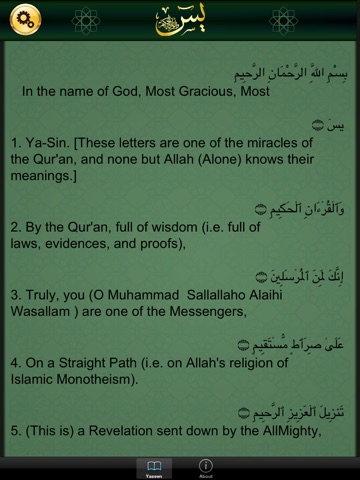 يس
بِسْمِ اللَّهِ الرَّحْمَٰنِ الرَّحِيمِ
In the name of God, Most Gracious, Most
يسٓ
1. Ya-Sin. [These letters are one of the miracles
of the Qur'an, and none but Allah (Alone) knows their
meanings.]
وَٱلْقُرْءَانِ ٱلْحَكِيمِ
2. By the Qur'an, full of wisdom (i.e. full of
laws, evidences, and proofs),
إِنَّكَ لَمِنَ ٱلْمُرْسَلِينَ
3. Truly, you (O Muhammad  Sallallaho Alaihi
Wasallam ) are one of the Messengers,
عَلَىٰ صِرَٰطٍ مُّسْتَقِيمٍ
4. On a Straight Path (i.e. on Allah's religion of
Islamic Monotheism).
تَنزِيلَ ٱلْعَزِيزِ ٱلرَّحِيمِ
5. (This is) a Revelation sent down by the AllMighty,
Yaseen About